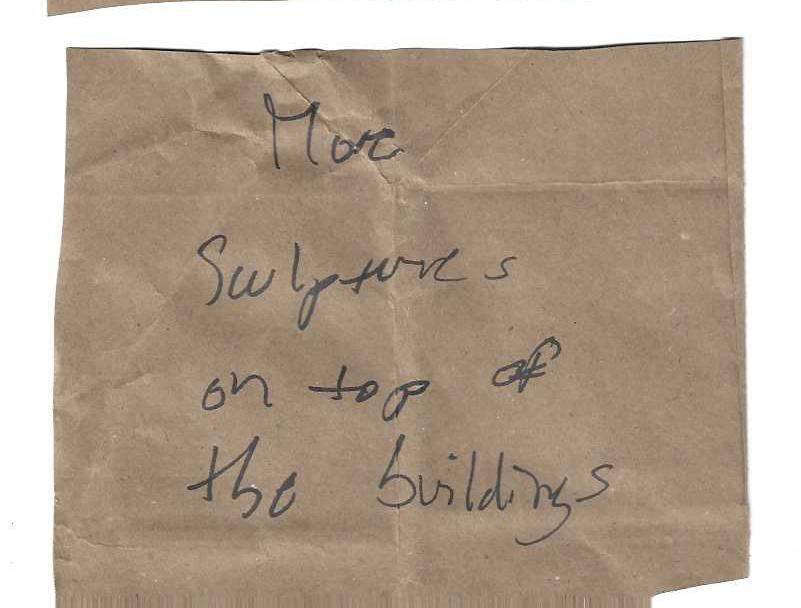 More
Sculptures
on top of
the buildings